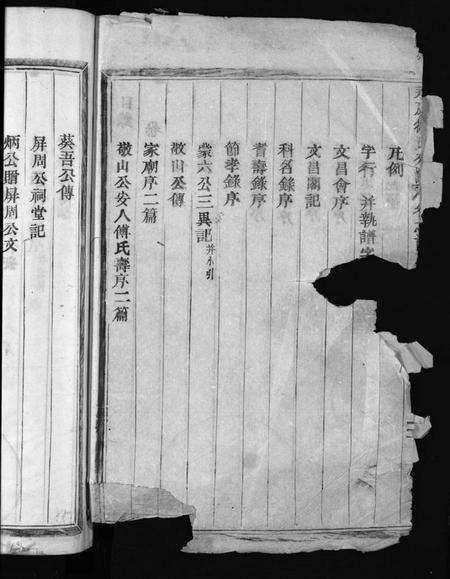 凡例
字行 并執譜字
文昌會序
文昌閣記
科名錄序
耆壽錄序
節孝錄序
蒙六公三異記 并小引
敬山公傳
家廟序二篇
敬山公安人傅氏壽序二篇
葵吾公傳
屏周公祠堂記
炳公贈屏周公文